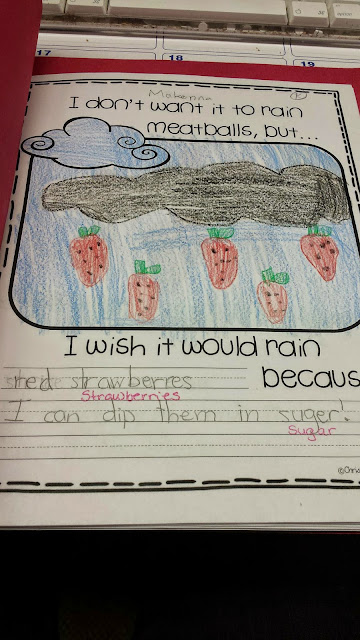 17 18 19
Mckenna
I don't want it to rain
meatballs, but...
I wish it would rain
red strawberres becaus
Strawberries
I can dip them in suger!
Sugar